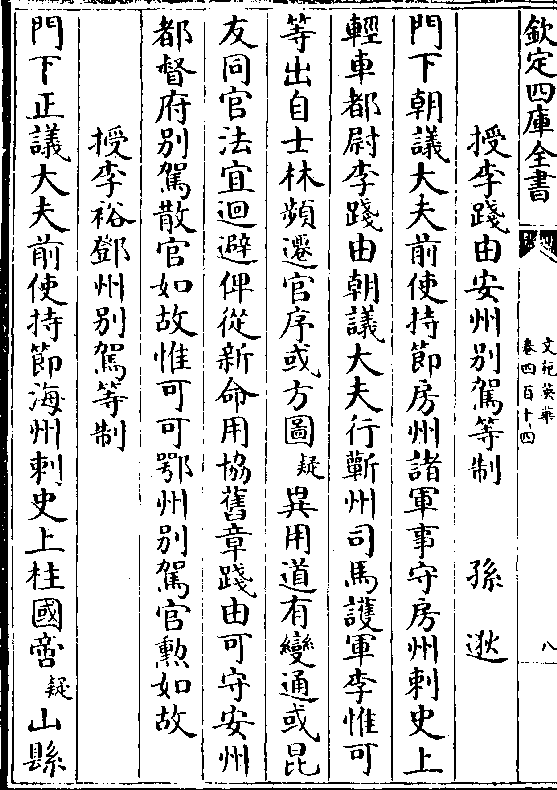 欽定四庫全書
文苑英華
卷四百十四
八
授李踐由安州別駕等制 孫逖
門下朝議大夫前使持節房州諸軍事守房州刺史上
輕車都尉李踐由朝議大夫行蘄州司馬護軍李惟可
等出自士林頻遷官序或方圖疑異用道有變通或昆
友同官法宜迴避俾從新命用協舊章踐由可守安州
都督府別駕散官如故惟可可鄂州別駕官勲如故
授李裕鄧州別駕等制
門下正議大夫前使持節海州刺史上柱國啻疑山縣